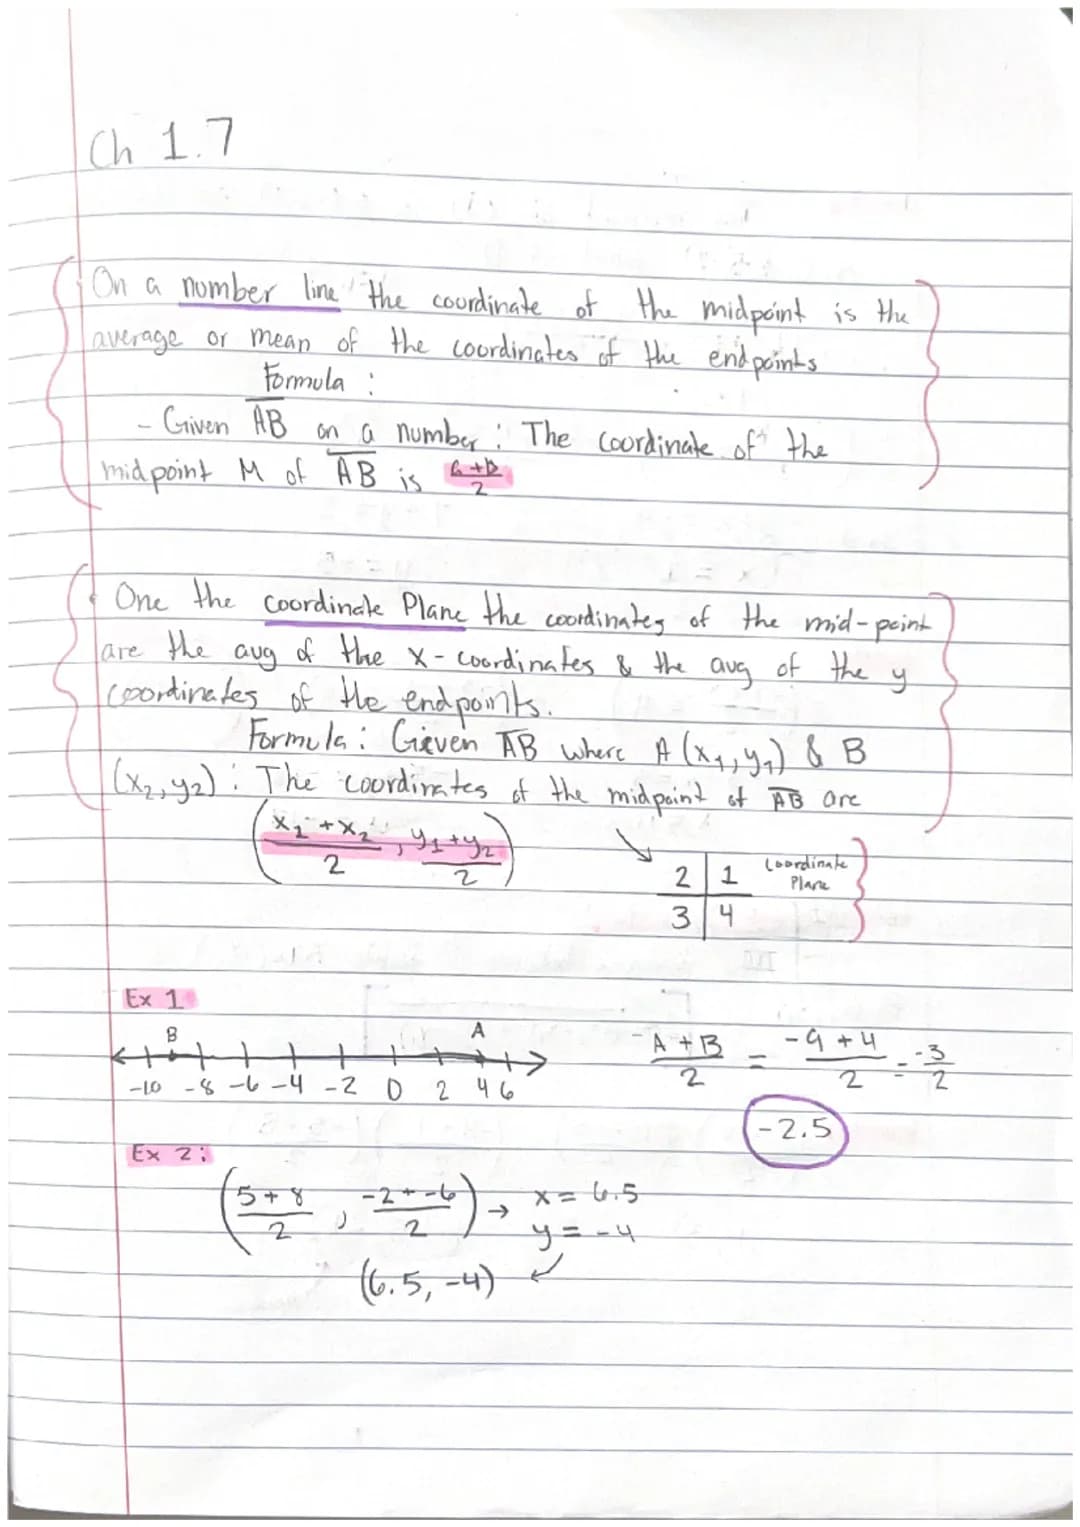 Ch 1.7
On a number line the coordinate of the midpoint is the
average or mean of the coordinates of the endpoints
Formula :
- Given AB on a number : The coordinate of the
midpoint M of AB is a+b/2
One the coordinate Plane the coordinates of the mid-point
are the avg of the x-coordinates & the avg of the y
coordinates of the endpoints.
Formula : Given AB where A (x1, y1) & B
(x2, y2) : The coordinates of the midpoint of AB are
(x1 + x2 / 2, y1 + y2 / 2)
2 1 Coordinate
Plane
3 4
Ex 1
B A
-10 -8 -6 -4 -2 0 2 4 6
A + B / 2 = -9 + 4 / 2 = -3 / 2
-2.5
Ex 2:
(5 + 8 / 2, -2 + -6 / 2) → x = 6.5
y = -4
(6.5, -4)